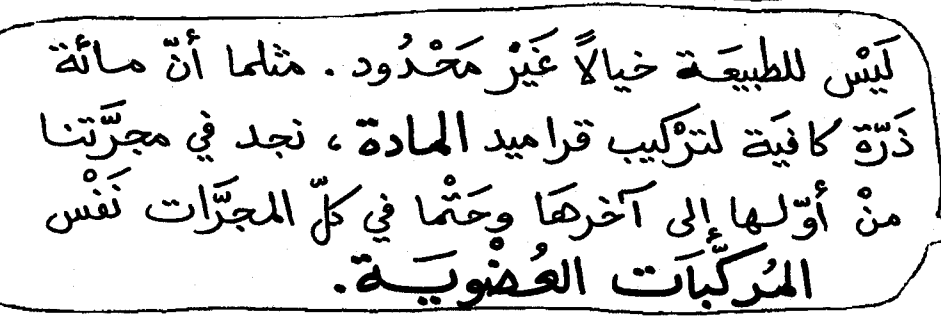 لَيْس للطبيعَة خيالاً غَيْر مَحْدُود. مثلما أنّ مائة
ذَرّة كافيَة لترْكيب قراميد المادة، نجد في مجرَّتنا
منْ أوّلها إلى آخرهَا وحَتْما في كلّ المجرَّات نَفْس
المُركَّبَات العُضْويَة.